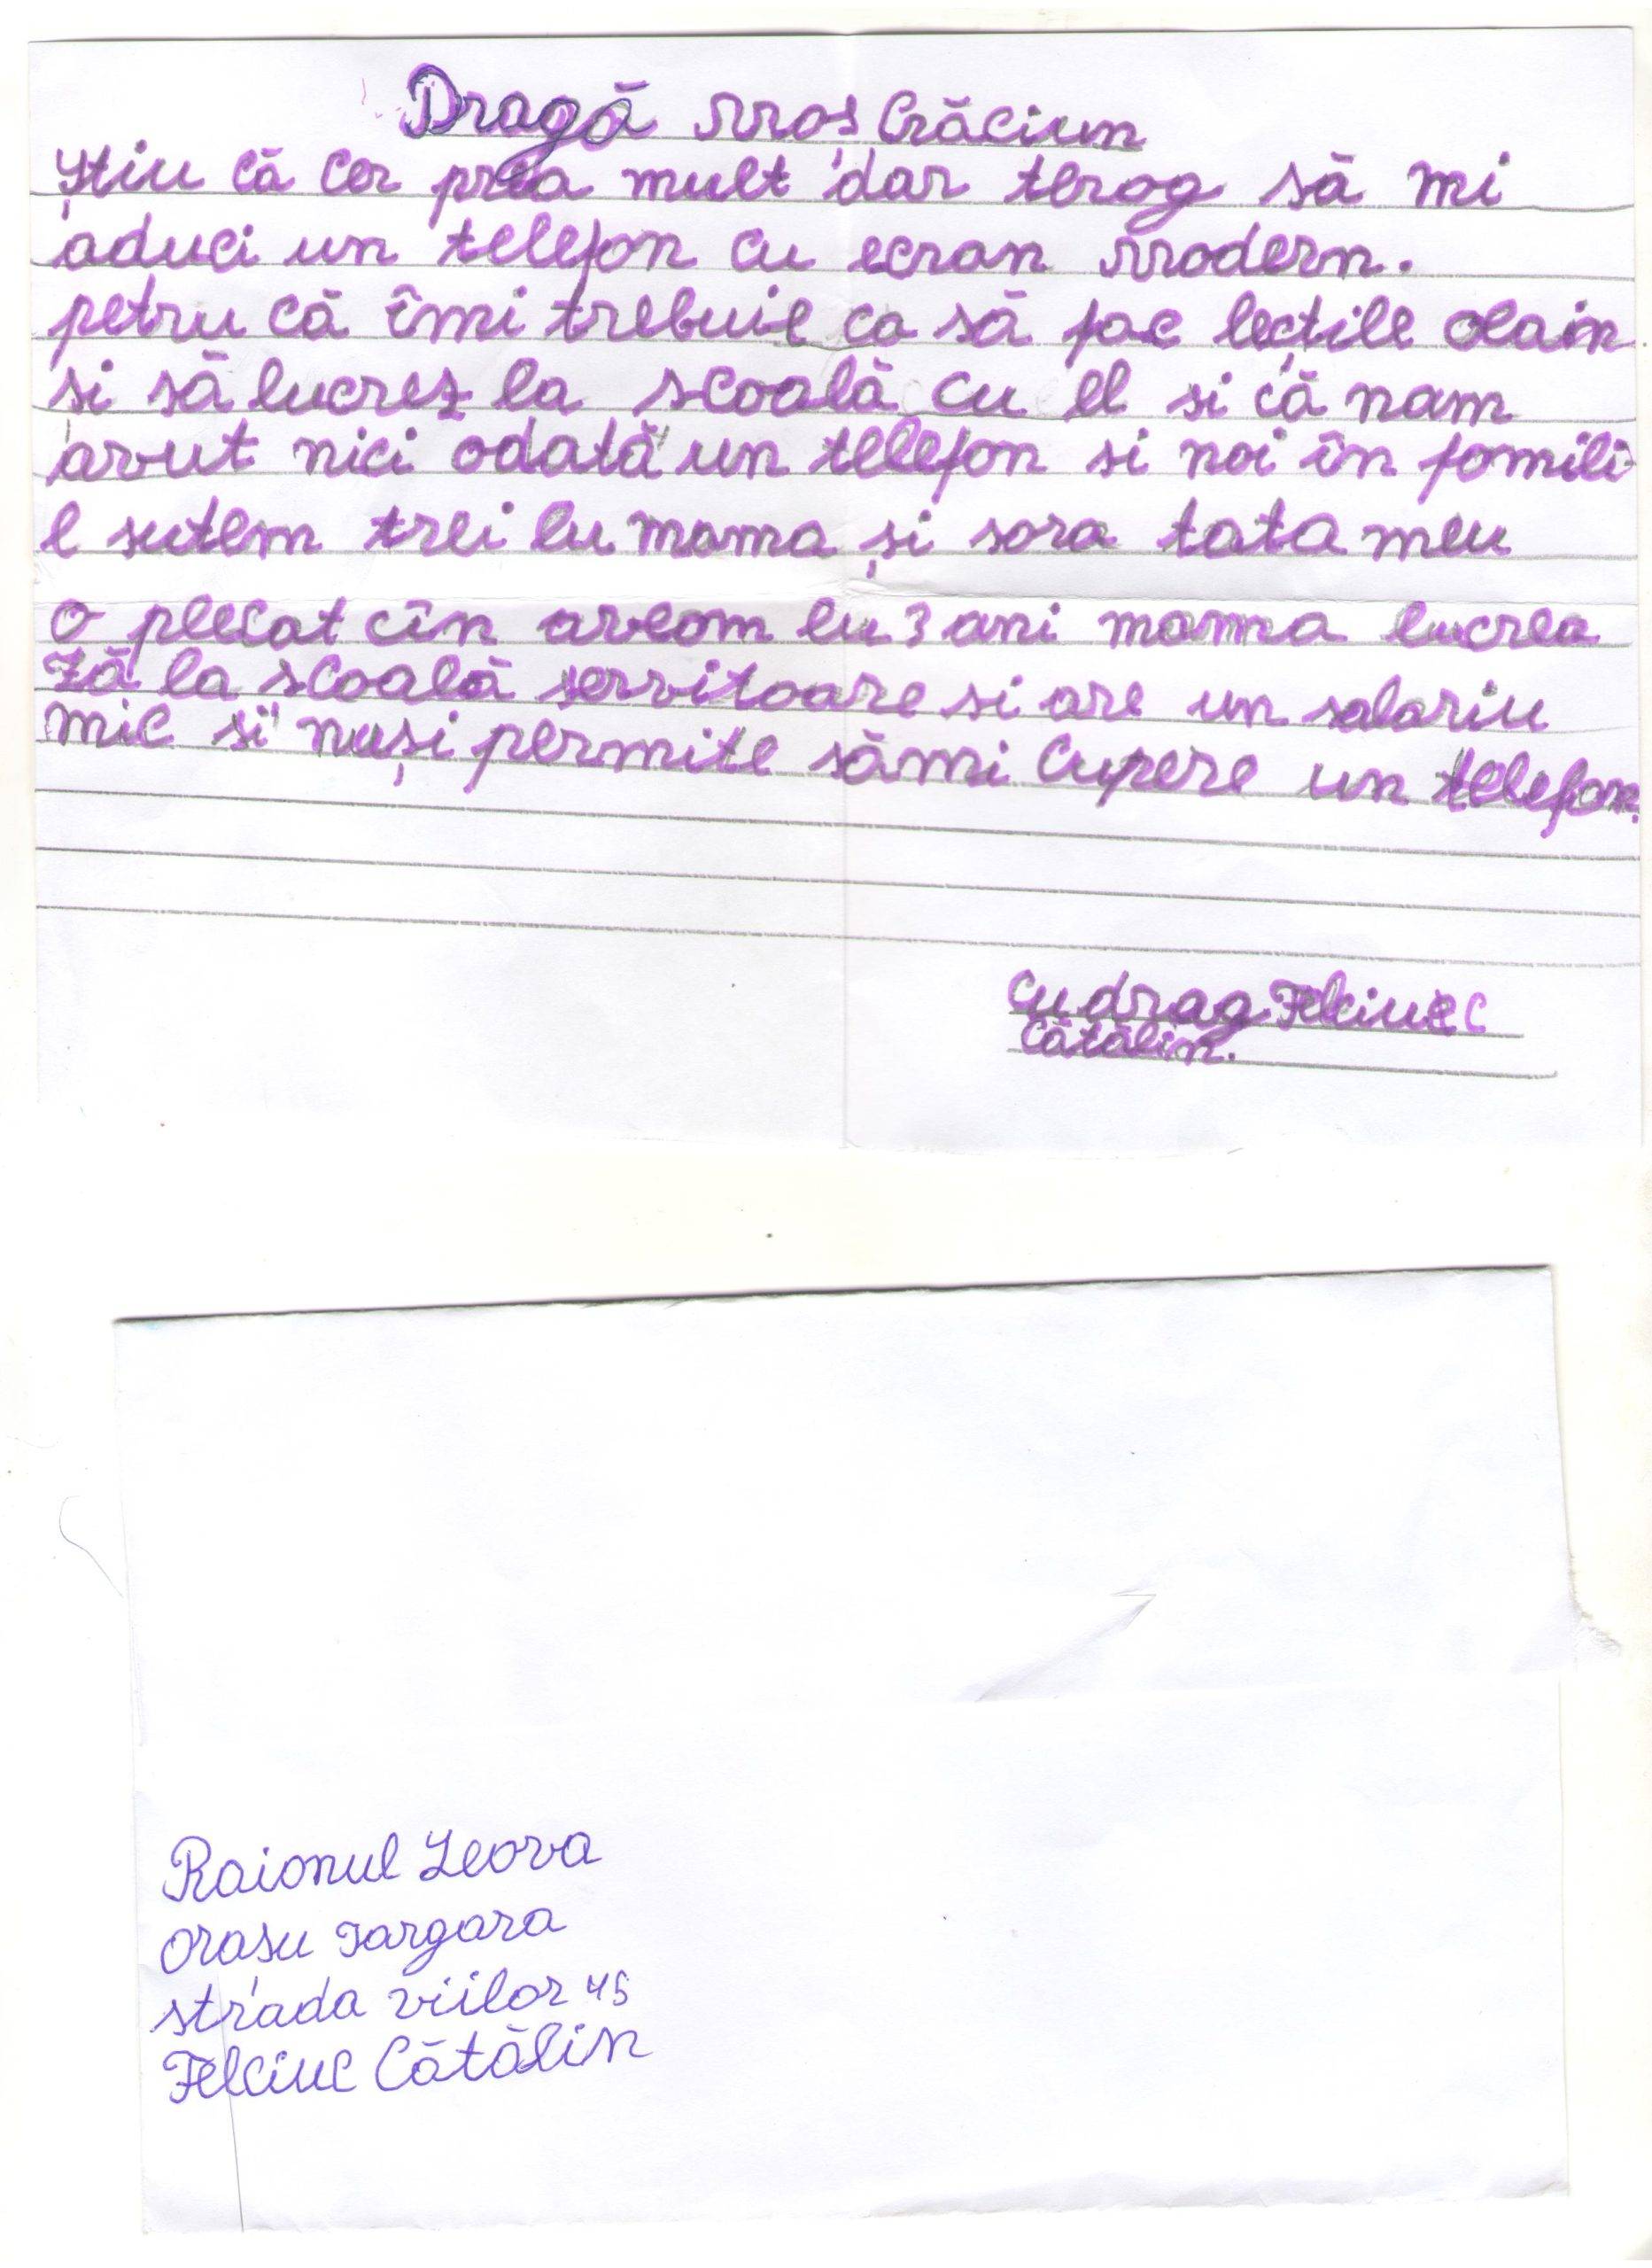 Dragă Moș Crăciun
Știu că cer prea mult dar terog să mi
aduci un telefon cu ecran modern.
petru că îmi trebuie ca să fac lecțile olain
si să lucrez la scoală cu el si că nam
avut nici odată un telefon si noi în famili-
e sutem trei eu mama și sora tata meu
o plecat cîn aveam eu 3 ani mama lucrea
ză la scoală servitoare si are un salariu
mic si nuși permite sămi cupere un telefon.
Cu drag Felciuc C
Cătălin.
Raionul Leova
orasu Iargara
strada viilor 45
Felciuc Cătălin